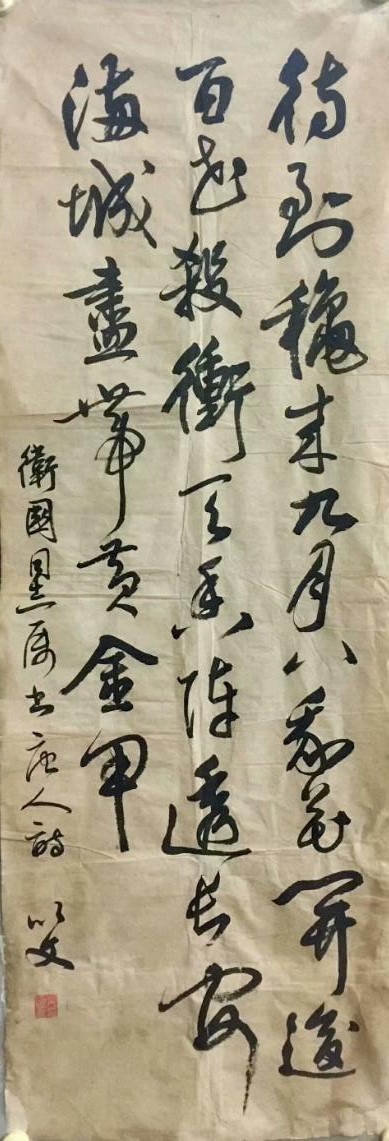 待到穐来九月八我花開後
百花殺衝天香陣透長安
滿城盡帶黄金甲
衛國書唐人詩